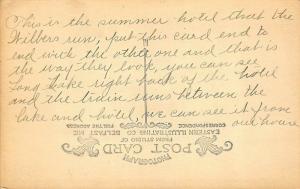 This is the summer hotel that the
Wilbers run, put this card end to
end with the other one and that is
the way they look, you can see
Long Lake right back of the hotel
and the train runs between the
lake and hotel, we can see it from
our house
POST CARD
PHOTOGRAPH
FROM STUDIO OF
EASTERN ILLUSTRATING CO
BELFAST, ME.
CORRESPONDENCE
FOR THE ADDRESS